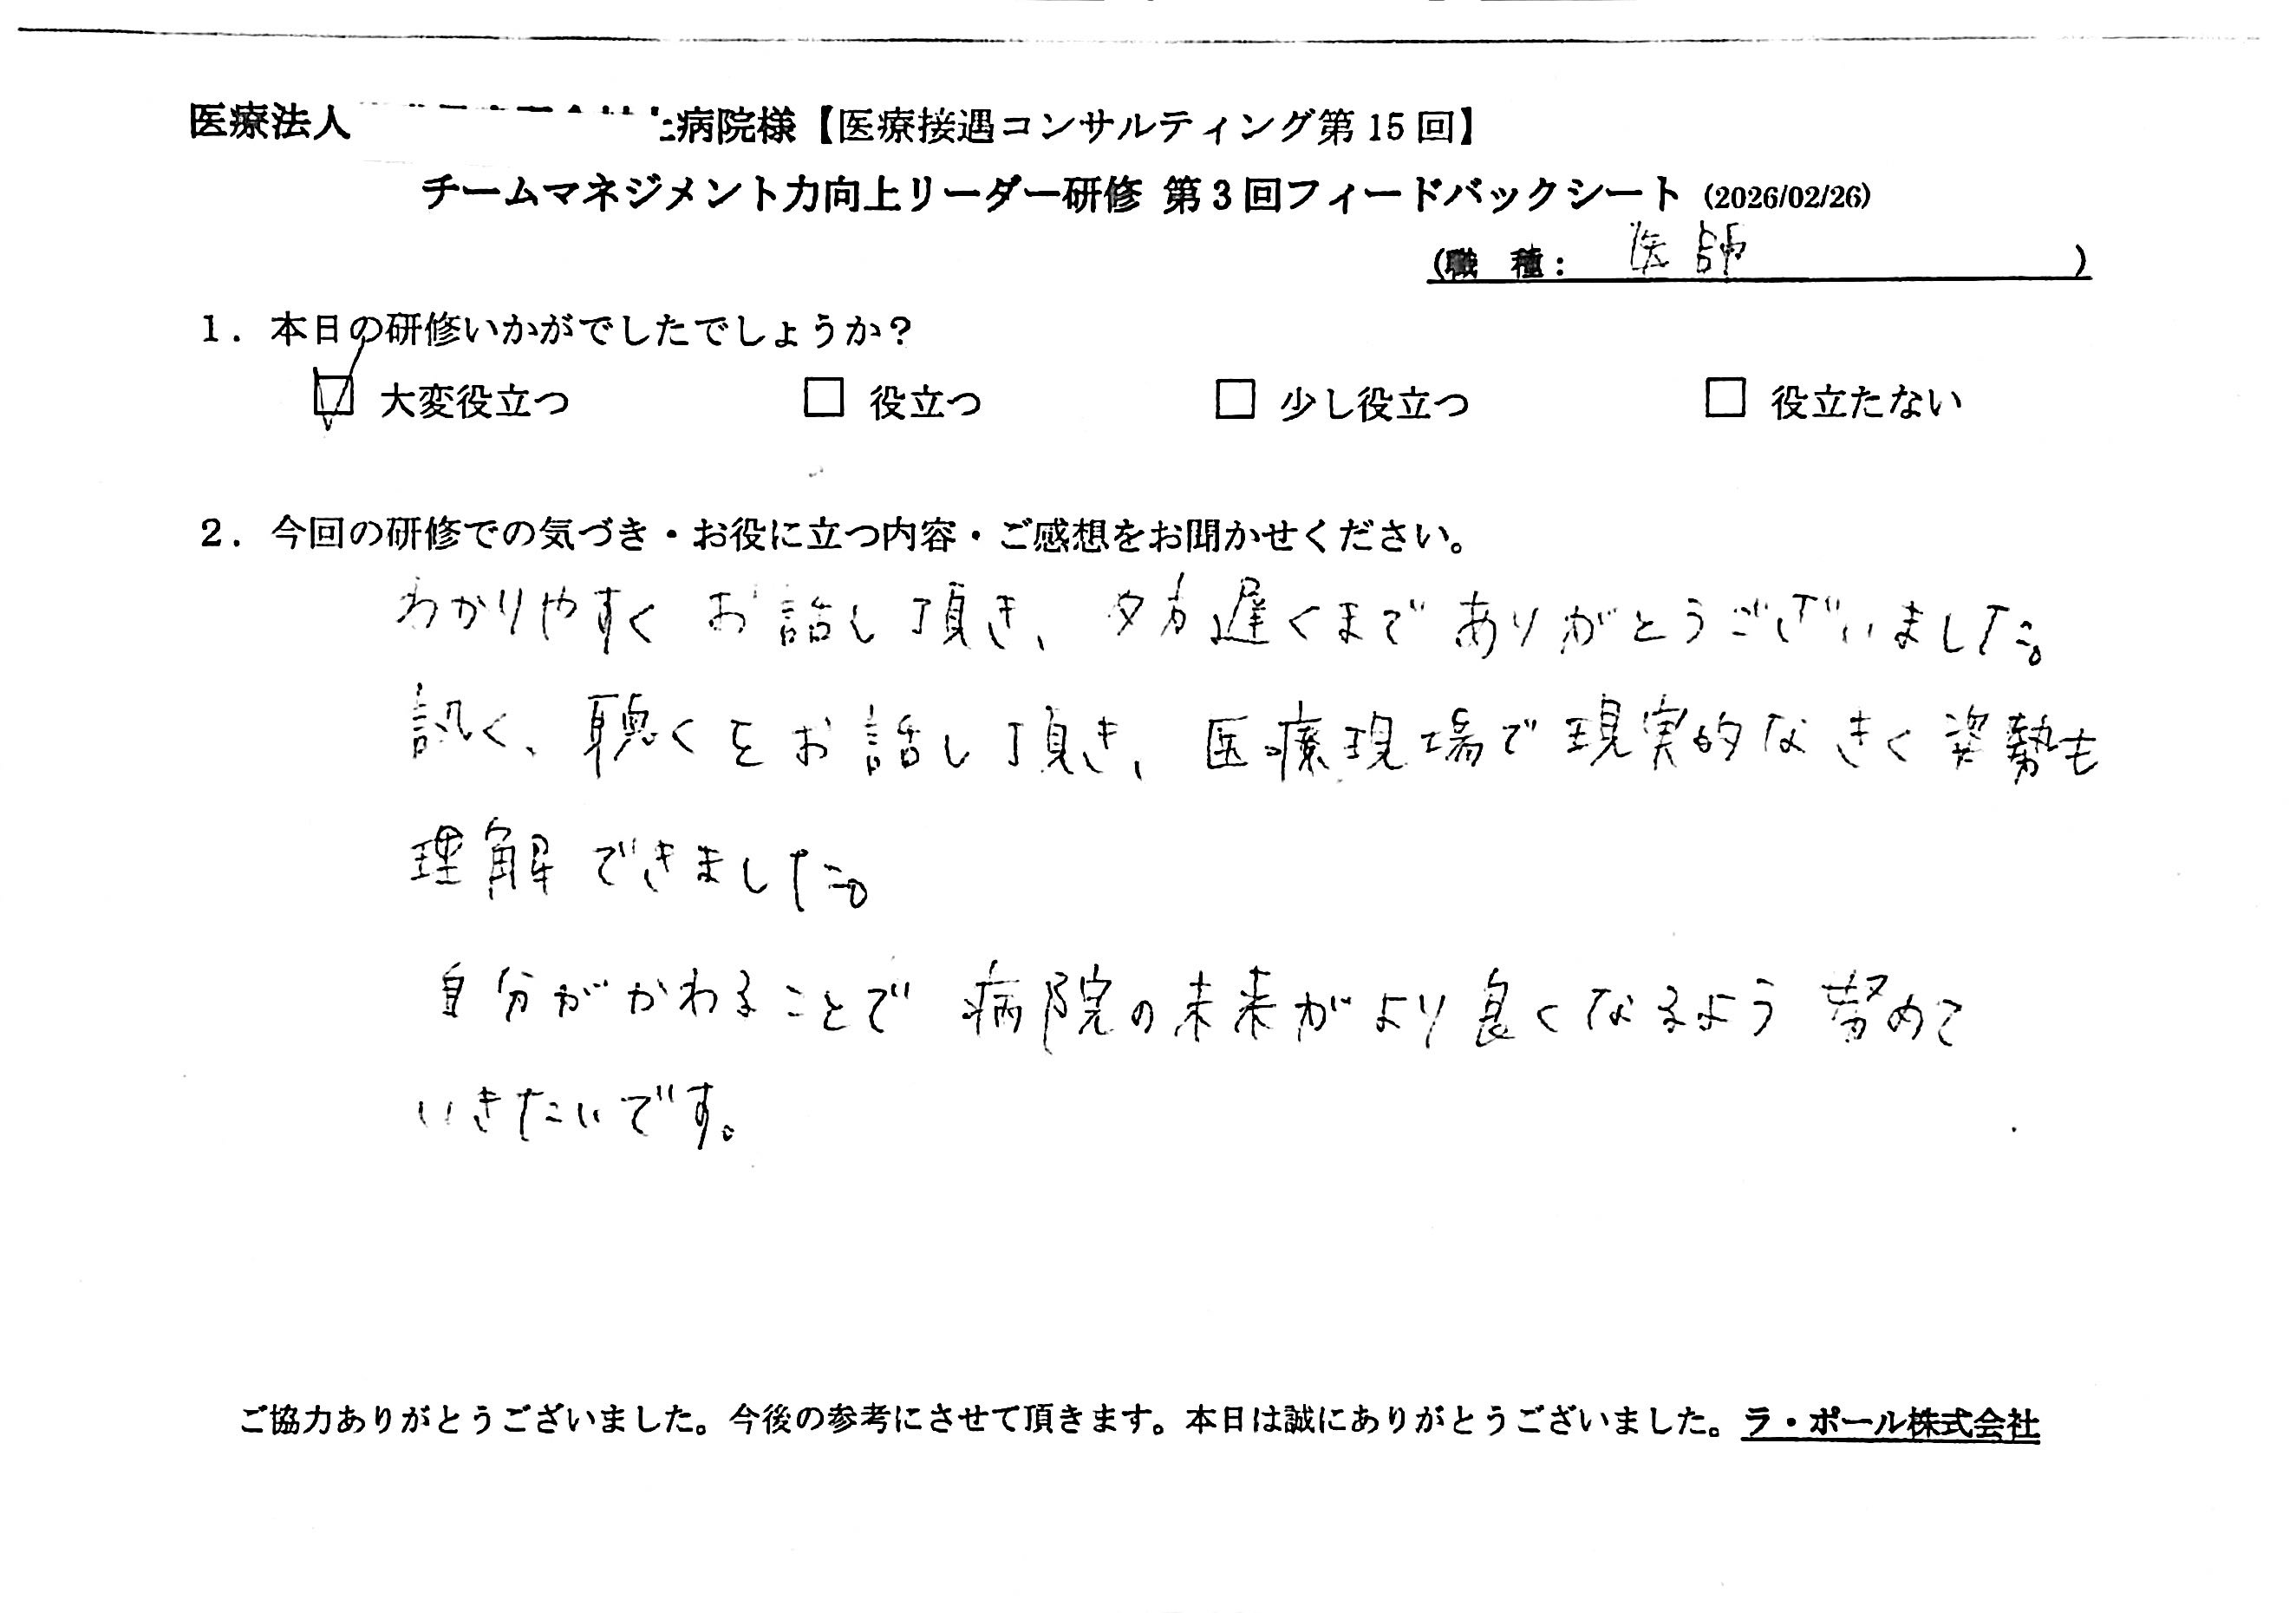 医療法人 病院様【医療接遇コンサルティング第 15 回】
チームマネジメント力向上リーダー研修 第3回フィードバックシート (2026/02/26)
(職 種： 医師 )
1．本日の研修いかがでしたでしょうか？
☑ 大変役立つ □ 役立つ □ 少し役立つ □ 役立たない
2．今回の研修での気づき・お役に立つ内容・ご感想をお聞かせください。
わかりやすく お話し頂き、夕方遅くまでありがとうございました。
訊く、聴くをお話し頂き、医療現場で現実的なきく姿勢も
理解できました。
自分がかわることで 病院の未来がより良くなるよう 努めて
いきたいです。
ご協力ありがとうございました。今後の参考にさせて頂きます。本日は誠にありがとうございました。ラ・ポール株式会社